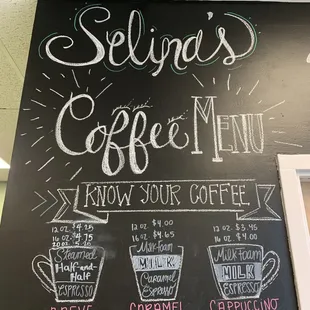 Selina's
Coffee Menu
KNOW YOUR COFFEE
12 oz $4.25
16 oz $4.75
20 oz 5.25
12 oz. $4.00
16 oz. $4.65
12 oz. $3.45
16 oz. $4.00
Steamed
Half-and-
Half
ESPRESSO
Milk foam
MILK
Caramel
Espresso
Milk foam
MILK
ESPRESSO
BREVE
CARAMEL
CAPPUCCINO